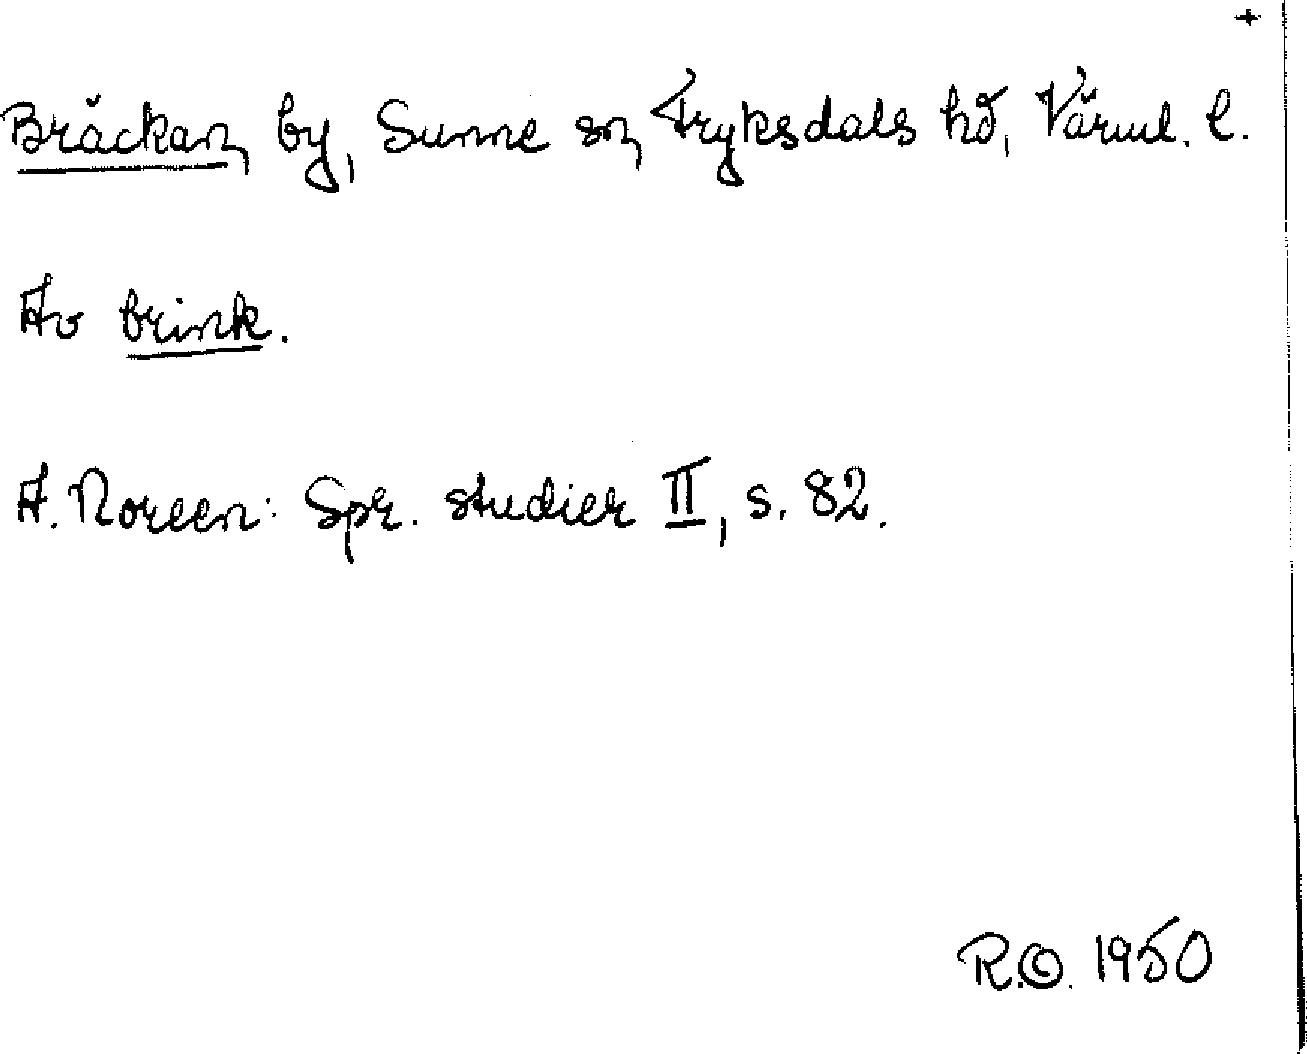 +
Bräckan, by, Sunne sn, Fryksdals hd, Värml. l.
Av brink.
A. Noreen: Spr. studier II, s. 82.
R.O. 1950